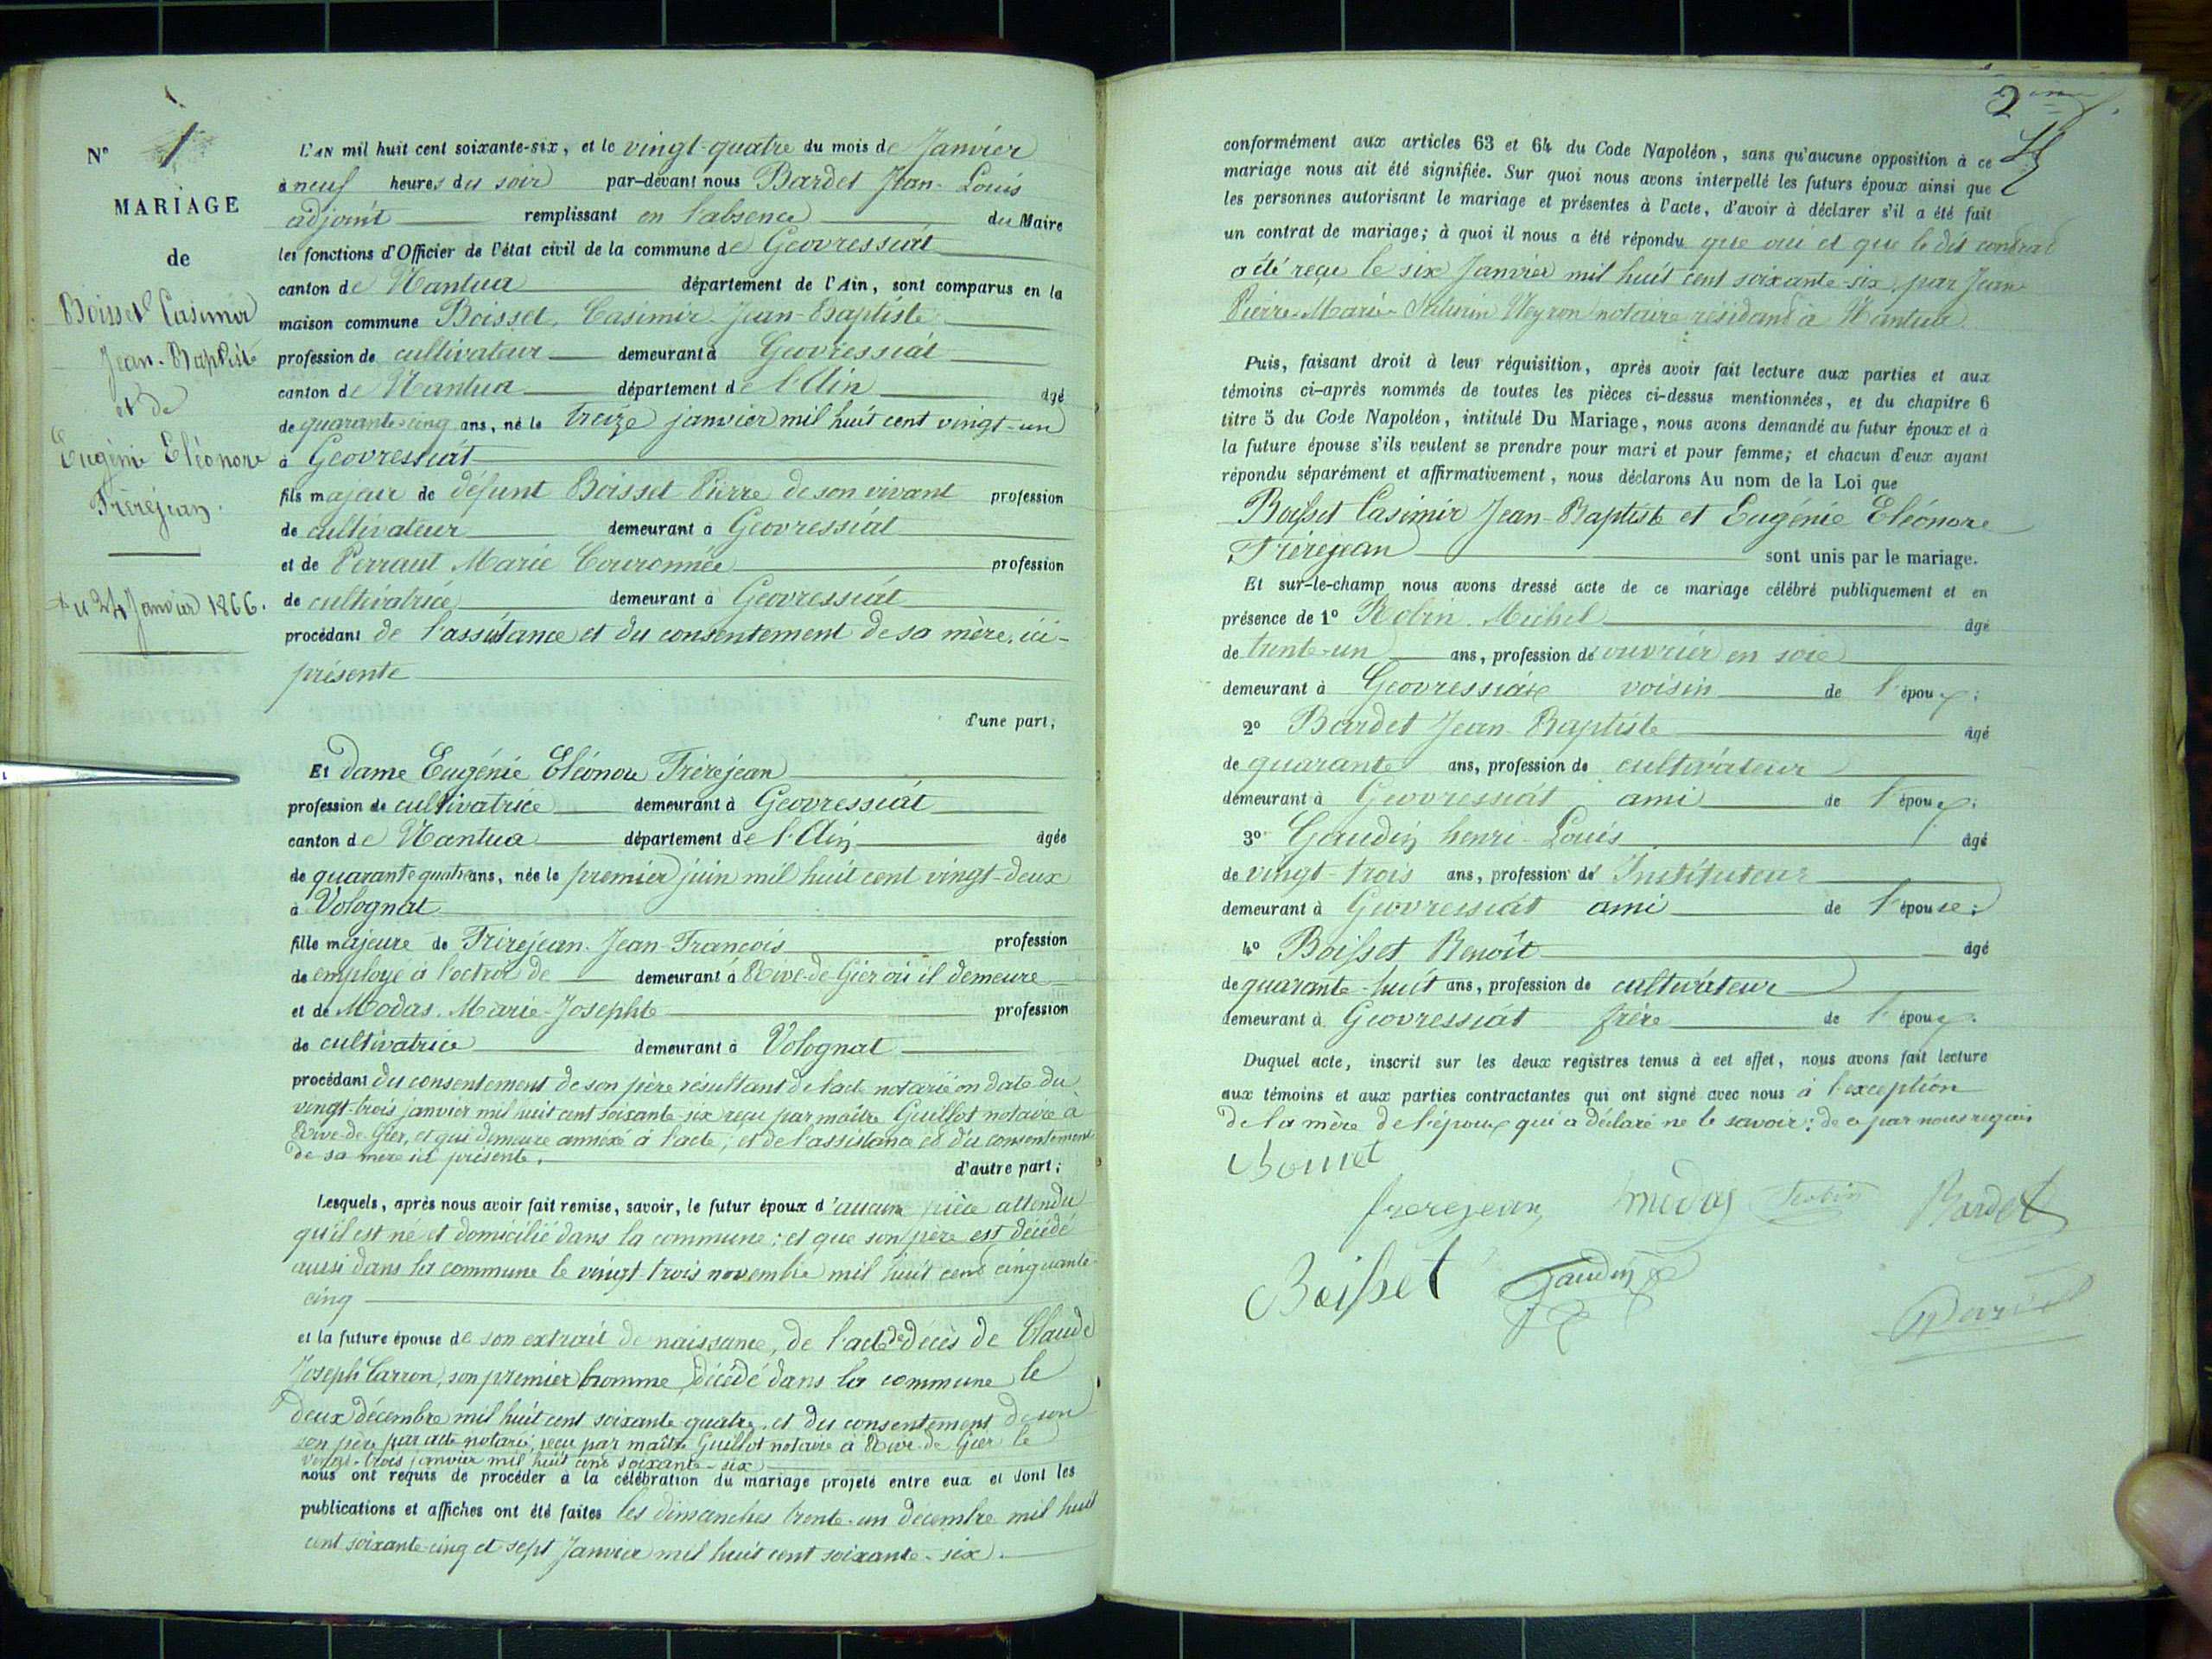 N° 1
MARIAGE
de
Boisset Casimir
Jean-Baptiste
et de
Eugénie Eléonore
Frèrejean.
Du 24 Janvier 1866.
L'AN mil huit cent soixante-six, et le vingt-quatre du mois de Janvier
à neuf heures du soir par-devant nous Bardet Jean-Louis
adjoint remplissant en l'absence du Maire
les fonctions d'Officier de l'état civil de la commune de Geovressiat
canton de Nantua département de l'Ain, sont comparus en la
maison commune Boisset, Casimir Jean-Baptiste
profession de cultivateur demeurant à Geovressiat
canton de Nantua département de l'Ain âgé
de quarante-cinq ans, né le treize janvier mil huit cent vingt-un
à Geovressiat
fils majeur de défunt Boisset Pierre de son vivant profession
de cultivateur demeurant à Geovressiat
et de Perraut Marie Couronnée profession
de cultivatrice demeurant à Geovressiat
procédant de l'assistance et du consentement de sa mère, ici-
présente
d'une part;
Et dame Eugénie Eléonore Frèrejean
profession de cultivatrice demeurant à Geovressiat
canton de Nantua département de l'Ain âgée
de quarante quatre ans, née le premier juin mil huit cent vingt-deux
à Volognat
fille majeure de Frèrejean Jean-François profession
de employé à l'octroi de demeurant à Rive-de-Gier où il demeure
et de Modas Marie-Josephte profession
de cultivatrice demeurant à Volognat
procédant du consentement de son père résultant de l'acte notarié en date du
vingt-trois janvier mil huit cent soixante-six reçu par maître Guillot notaire à
Rive-de-Gier, et qui demeure annéxé à l'acte; et de l'assistance et du consentement
de sa mère ici présente.
d'autre part;
Lesquels, après nous avoir fait remise, savoir, le futur époux d'aucune pièce attendu
qu'il est né et domicilié dans la commune; et que son père est décédé
aussi dans la commune le vingt trois novembre mil huit cent cinquante-
cinq
et la future épouse de son extrait de naissance, de l'acte de décès de Claude
Joseph Carron, son premier homme, décédé dans la commune le
deux décembre mil huit cent soixante quatre, et du consentement de son
son père par acte notarié, reçu par maître Guillot notaire à Rive-de-Gier le
vingt-trois janvier mil huit cent soixante-six
nous ont requis de procéder à la célébration du mariage projeté entre eux et dont les
publications et affiches ont été faites les dimanches trente-un décembre mil huit
cent soixante-cinq et sept Janvier mil huit cent soixante-six.
conformément aux articles 63 et 64 du Code Napoléon, sans qu'aucune opposition à ce
mariage nous ait été signifiée. Sur quoi nous avons interpellé les futurs époux ainsi que
les personnes autorisant le mariage et présentes à l'acte, d'avoir à déclarer s'il a été fait
un contrat de mariage; à quoi il nous a été répondu que oui et que le dit contrat
a été reçu le six Janvier mil huit cent soixante-six, par Jean
Pierre-Marie notaire résidant à Nantua
Puis, faisant droit à leur réquisition, après avoir fait lecture aux parties et aux
témoins ci-après nommés de toutes les pièces ci-dessus mentionnées, et du chapitre 6
titre 5 du Code Napoléon, intitulé Du Mariage, nous avons demandé au futur époux et à
la future épouse s'ils veulent se prendre pour mari et pour femme; et chacun d'eux ayant
répondu séparément et affirmativement, nous déclarons Au nom de la Loi que
Boisset Casimir Jean-Baptiste et Eugénie Eléonore
Frèrejean sont unis par le mariage.
Et sur-le-champ nous avons dressé acte de ce mariage célébré publiquement et en
présence de 1° Robin Michel âgé
de trente-un ans, profession d'ouvrier en soie
demeurant à Geovressiat voisin de l'époux;
2° Bardet Jean-Baptiste âgé
de quarante ans, profession de cultivateur
demeurant à Geovressiat ami de l'époux;
3° Gaudin henri-Louis âgé
de vingt-trois ans, profession d'Instituteur
demeurant à Geovressiat ami de l'épouse;
4° Boisset Benoît âgé
de quarante-huit ans, profession de cultivateur
demeurant à Geovressiat frère de l'époux.
Duquel acte, inscrit sur les deux registres tenus à cet effet, nous avons fait lecture
aux témoins et aux parties contractantes qui ont signé avec nous à l'exception
de la mère de l'époux qui a déclaré ne le savoir; de ce par nous requis
Boisset
frerejean modas Robin Bardet
Boisset Gaudin
Bardet